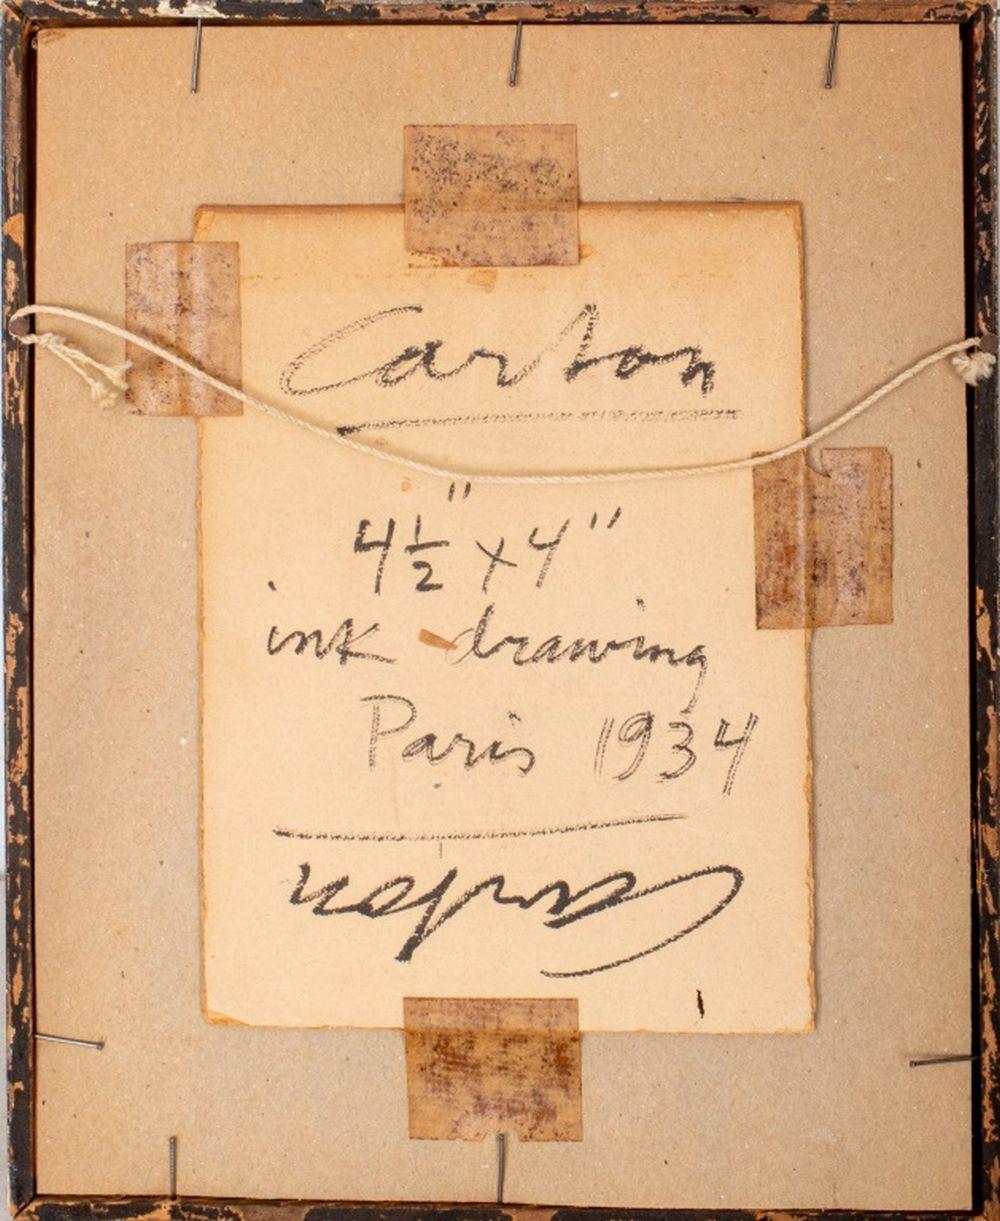 Carton
4 1/2" x 4"
ink drawing
Paris 1934
Carton